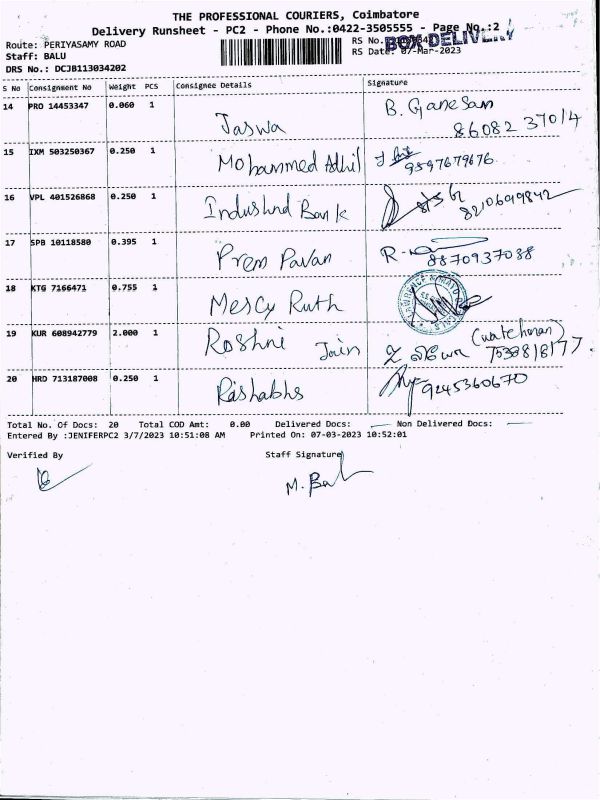 THE PROFESSIONAL COURIERS, Coimbatore
Delivery Runsheet - PC2 - Phone No.:0422-3505555 - Page No.:2
Route: PERIYASAMY ROAD
RS No.
BOX DELIVERY
Staff: BALU
RS Date: 07-Mar-2023
DRS No.: DCJB113034202
S No Consignment No Weight PCS Consignee Details Signature
14 PRO 14453347 0.060 1 Jaswa B. Ganesan
86082 37014
15 IXM 503250367 0.250 1 Mohammed Adhil 9597679676
16 VPL 401526868 0.250 1 Indushnd Bank 8210699842
17 SPB 10118580 0.395 1 Prem Pavan R. 8870937088
18 KTG 7166471 0.755 1 Mercy Ruth
19 KUR 608942779 2.000 1 Roshni Jain (watchman)
20 HRD 713187008 0.250 1 Rishabhs 9245360670
Total No. Of Docs: 20 Total COD Amt: 0.00 Delivered Docs: Non Delivered Docs:
Entered By :JENIFERPC2 3/7/2023 10:51:08 AM Printed On: 07-03-2023 10:52:01
Verified By Staff Signature
M. Bal